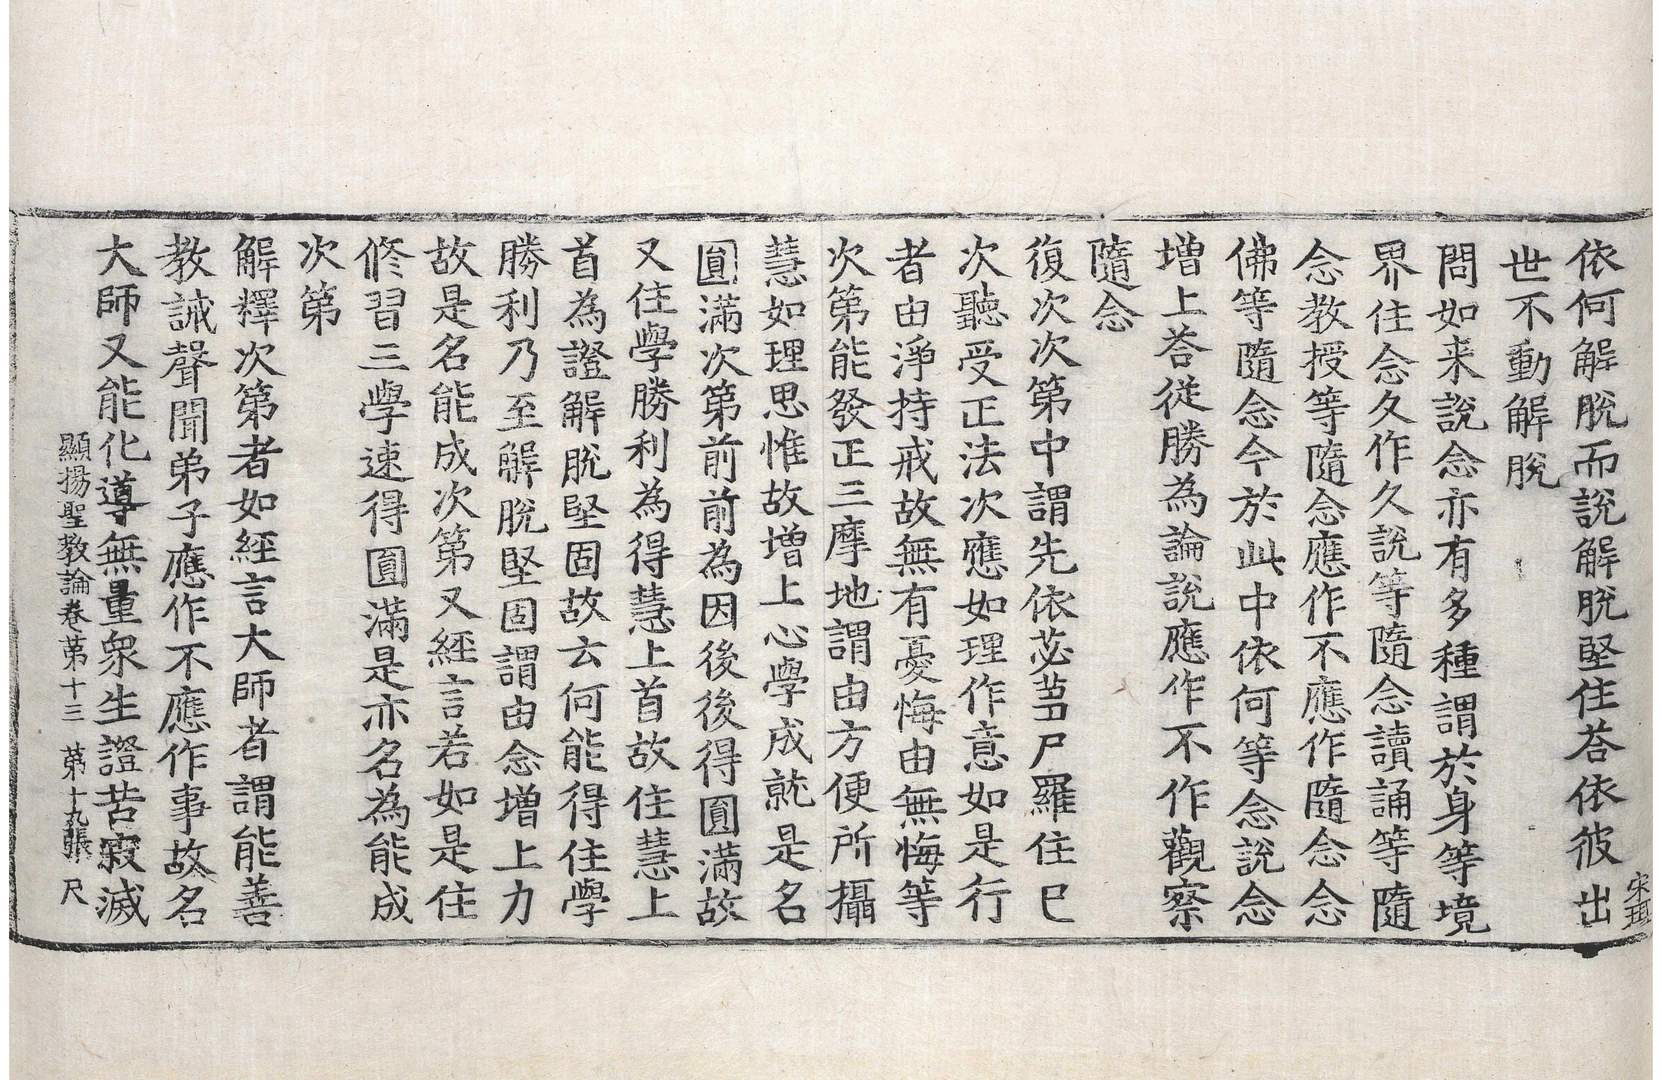 依何解脫而說解脫堅住荅依彼出
宋珇
世不動解脫
問如来說念亦有多種謂於身等境
界住念久作久說等隨念讀誦等隨
念教授等隨念應作不應作隨念念
佛等隨念今於此中依何等念說念
增上荅從勝為論說應作不作觀察
隨念
復次次第中謂先依苾芻尸羅住已
次聽受正法次應如理作意如是行
者由淨持戒故無有憂悔由無悔等
次第能發正三摩地謂由方便所攝
慧如理思惟故增上心學成就是名
圓滿次第前前為因後後得圓滿故
又住學勝利為得慧上首故住慧上
首為證解脫堅固故云何能得住學
勝利乃至解脫堅固謂由念增上力
故是名能成次第又經言若如是住
修習三學速得圓滿是亦名為能成
次第
解釋次第者如經言大師者謂能善
教誡聲聞弟子應作不應作事故名
大師又能化導無量衆生證苦寂滅
顯揚聖教論卷苐十三 苐十九張 尺